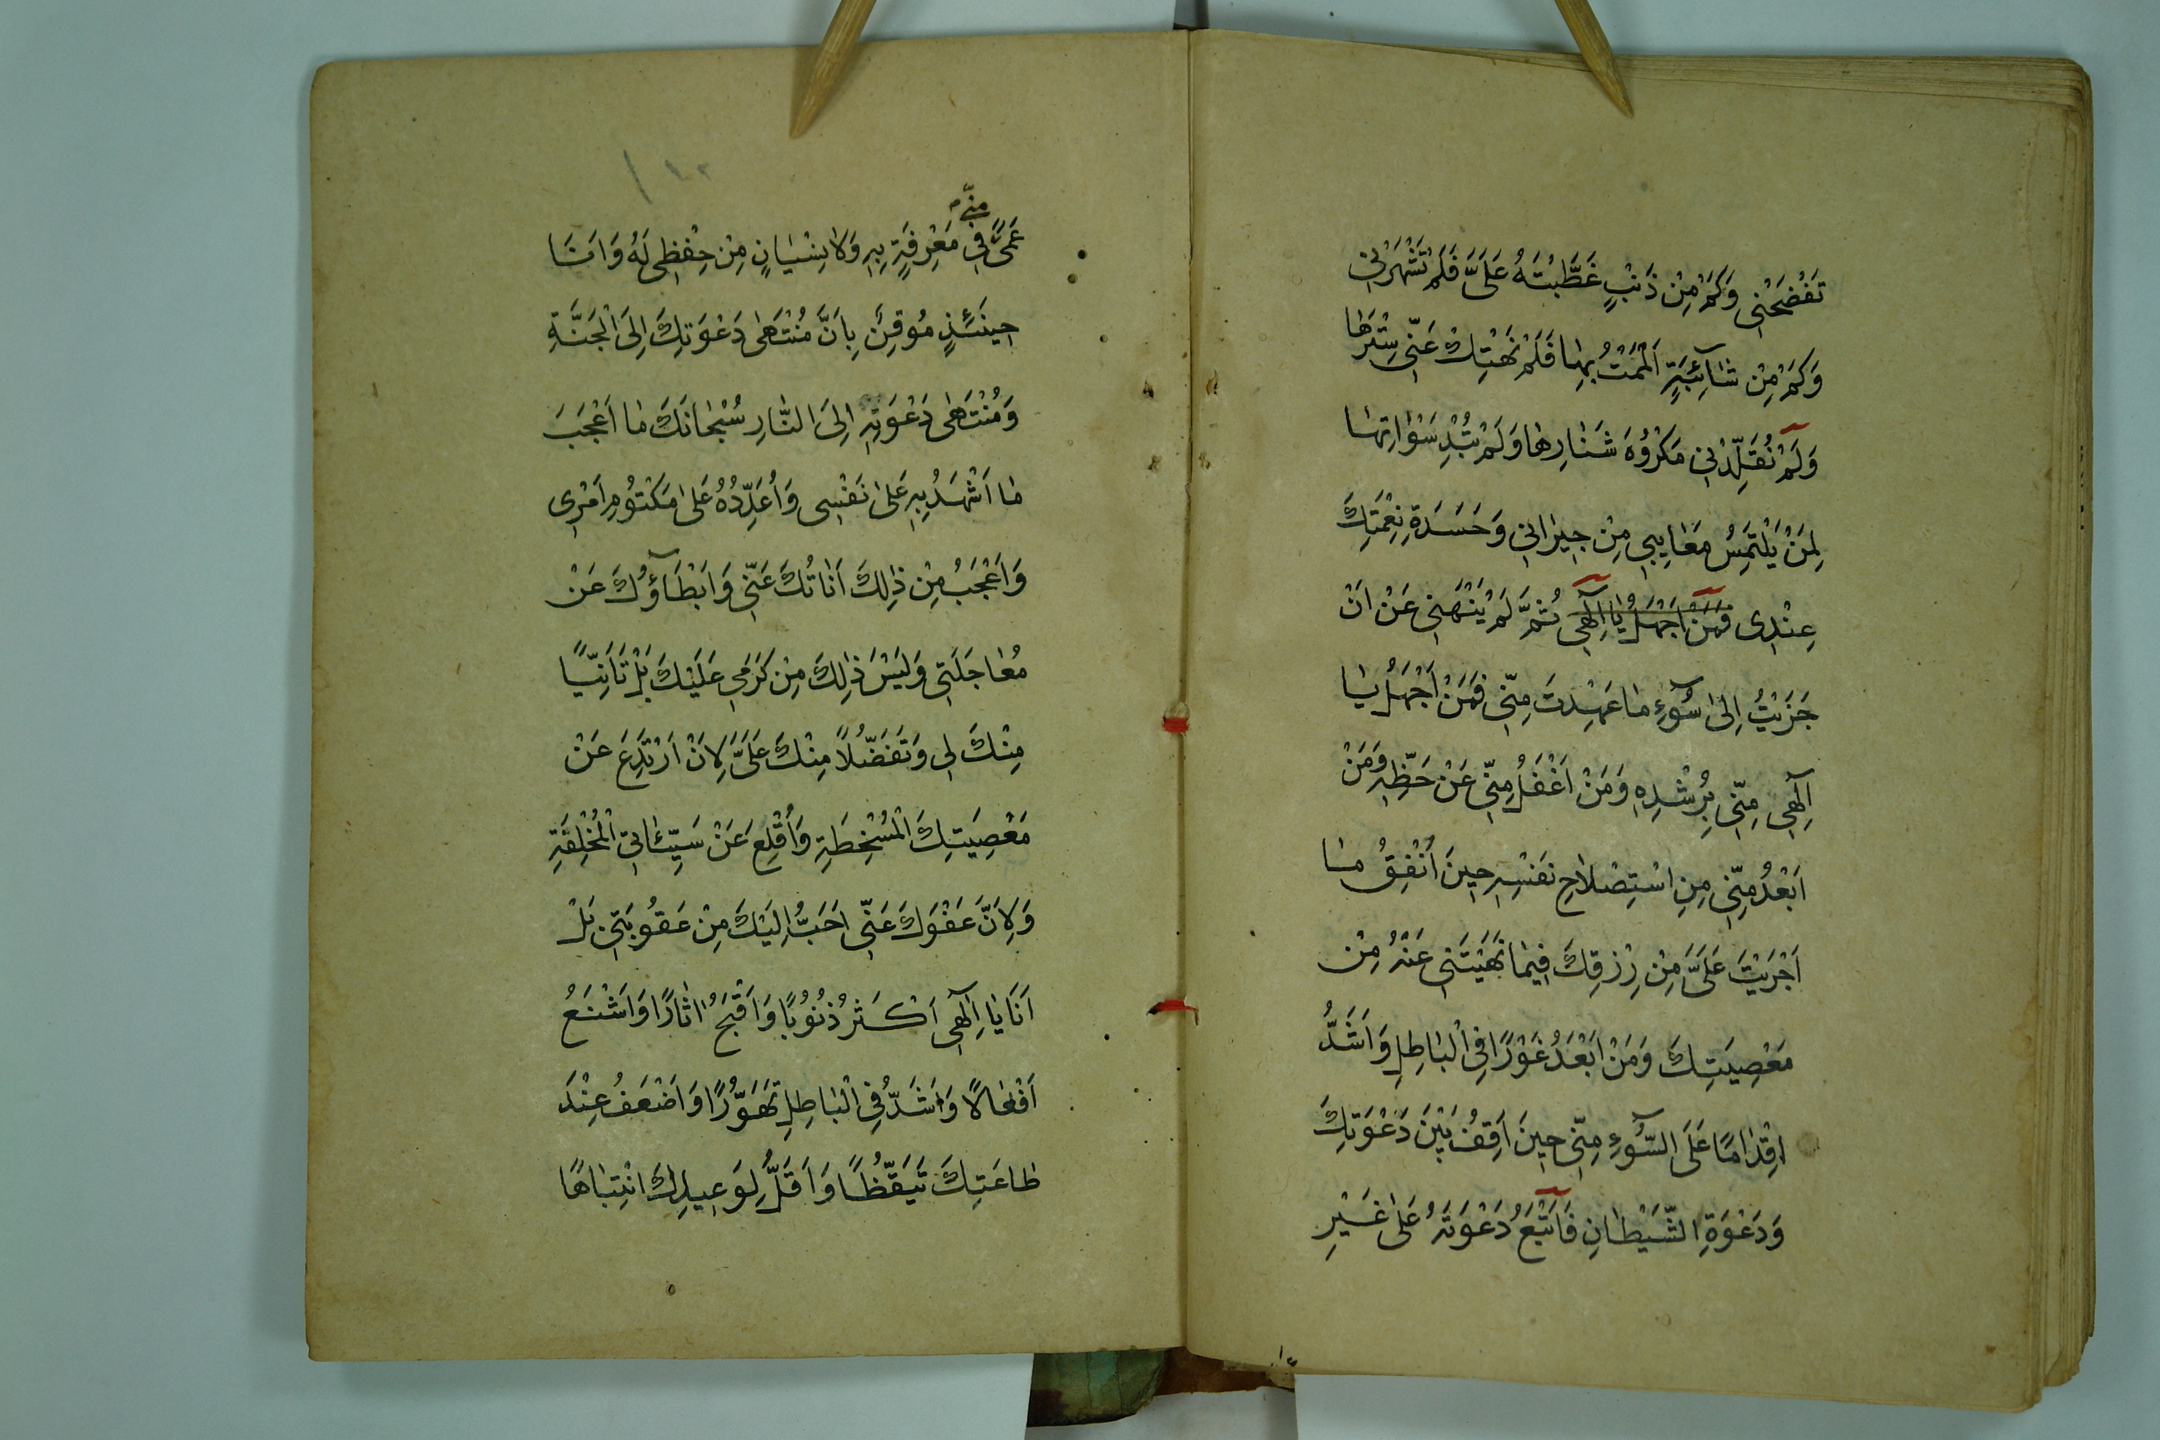 تَفْضَحْنِى وَكَمْ مِنْ ذَنْبٍ غَطَّيْتَهُ عَلَىَّ فَلَمْ تَشْهَرْنِى
وَكَمْ مِنْ شَآئِبَةٍ اَلْمَمْتُ بِهَا فَلَمْ تَهْتِكْ عَنِّى سِتْرَهَا
وَلَمْ تُقَلِّدْنِى مَكْرُوْهَ شَنَارِهَا وَلَمْ تُبْدِ سَوْاٰتِهَا
لِمَنْ يَلْتَمِسُ مَعَايِبِى مِنْ جِيْرَانِى وَحَسَدَةِ نِعْمَتِكَ
عِنْدِى فَمَنْ اَجْهَلُ يَا اِلٰهِى ثُمَّ لَمْ يَنْهَنِى عَنْ اَنْ
جَرَيْتُ اِلىٰ سُوٓءِ مَا عَهِدْتَ مِنِّى فَمَنْ اَجْهَلُ يَا
اِلٰهِى مِنِّى بِرُشْدِهِ وَمَنْ اَغْفَلُ مِنِّى عَنْ حَظِّهِ وَمَنْ
اَبْعَدُ مِنِّى مِنِ اسْتِصْلَاحِ نَفْسِهِ حِينَ اُنْفِقُ مَا
اَجْرَيْتَ عَلَىَّ مِنْ رِزْقِكَ فِيمَا نَهَيْتَنِى عَنْهُ مِنْ
مَعْصِيَتِكَ وَمَنْ اَبْعَدُ غَوْرًا فِى الْبَاطِلِ وَاَشَدُّ
اِقْدَامًا عَلَى السُّوٓءِ مِنِّى حِينَ اَقِفُ بَيْنَ دَعْوَتِكَ
وَدَعْوَةِ الشَّيْطَانِ فَاَتَّبِعُ دَعْوَتَهُ عَلىٰ غَيْرِ
عَمًى مِنِّى فِى مَعْرِفَةٍ بِهِ وَلَا نِسْيَانٍ مِنْ حِفْظِى لَهُ وَاَنَا
حِينَئِذٍ مُوقِنٌ بِاَنَّ مُنْتَهىٰ دَعْوَتِكَ اِلَى الْجَنَّةِ
وَمُنْتَهىٰ دَعْوَتِهِ اِلَى النَّارِ سُبْحَانَكَ مَا اَعْجَبَ
مَا اَشْهَدُ بِهِ عَلىٰ نَفْسِى وَاُعَدِّدُهُ عَلىٰ مَكْتُومِ اَمْرِى
وَاَعْجَبُ مِنْ ذٰلِكَ اَنَاتُكَ عَنِّى وَاِبْطَآؤُكَ عَنْ
مُعَاجَلَتِى وَلَيْسَ ذٰلِكَ مِنْ كَرَمِى عَلَيْكَ بَلْ تَاَنِّيًا
مِنْكَ لِى وَتَفَضُّلًا مِنْكَ عَلَىَّ لِاَنْ اَرْتَدِعَ عَنْ
مَعْصِيَتِكَ الْمُسْخِطَةِ وَاُقْلِعَ عَنْ سَيِّئَاتِىَ الْمُخْلِقَةِ
وَلِاَنَّ عَفْوَكَ عَنِّى اَحَبُّ اِلَيْكَ مِنْ عُقُوبَتِى بَلْ
اَنَا يَا اِلٰهِى اَكْثَرُ ذُنُوبًا وَاَقْبَحُ اٰثَارًا وَاَشْنَعُ
اَفْعَالًا وَاَشَدُّ فِى الْبَاطِلِ تَهَوُّرًا وَاَضْعَفُ عِنْدَ
طَاعَتِكَ تَيَقُّظًا وَاَقَلُّ لِوَعِيدِكَ انْتِبَاهًا